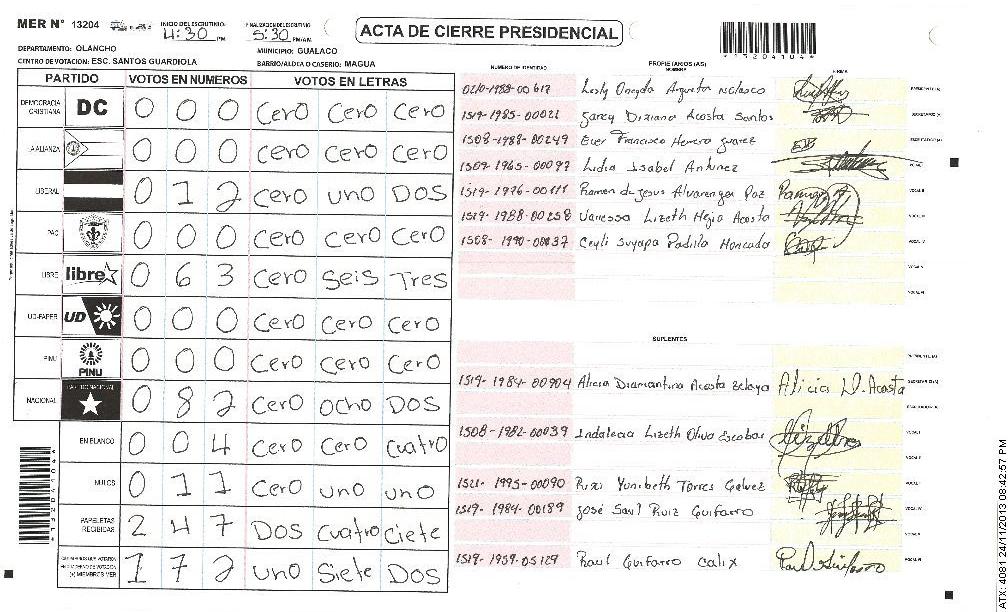 MER N° 13204 INICIO DEL ESCRUTINIO 4:30 PM FINALIZACION DEL ESCRUTINIO 5:30 PM/AM
ACTA DE CIERRE PRESIDENCIAL
*13204104*
DEPARTAMENTO: OLANCHO MUNICIPIO: GUALACO
CENTRO DE VOTACION: ESC. SANTOS GUARDIOLA BARRIO/ALDEA O CASERIO: MAGUA
PARTIDO VOTOS EN NUMEROS VOTOS EN LETRAS
DEMOCRACIA CRISTIANA DC 0 0 0 Cero Cero Cero
LA ALIANZA 0 0 0 Cero Cero Cero
LIBERAL 0 1 2 Cero uno DOS
PAC 0 0 0 Cero Cero Cero
LIBRE libre 0 6 3 Cero Seis Tres
UD-FAPER UD 0 0 0 Cero Cero Cero
PINU PINU 0 0 0 Cero Cero Cero
NACIONAL PARTIDO NACIONAL 0 8 2 Cero ocho DOS
EN BLANCO 0 0 4 Cero Cero cuatro
NULOS 0 1 1 Cero uno uno
PAPELETAS RECIBIDAS 2 4 7 DOS cuatro ciete
1 7 2 uno Siete DOS
*13204104*
NUMERO DE IDENTIDAD PROPIETARIOS (AS) NOMBRE FIRMA
0210-1988-00617 Lesly Oneyda Argueta nolasco PRESIDENTE (A)
1519-1985-00021 Jarey Diziana Acosta Santos SECRETARIO (A)
1508-1988-00249 Ever Francisco Herrera Juarez
1507-1965-00097 Lidia Isabel Antunez VOCAL I
1519-1976-00111 Ramon de Jesus Alvarenga Paz VOCAL II
1519-1988-00258 Vanessa Lizeth Mejia Acosta VOCAL III
1508-1990-00037 Ceyli Suyapa Padilla Moncada VOCAL IV
VOCAL V
VOCAL VI
SUPLENTES
PRESIDENTE (A)
1519-1984-00904 Alicia Diamantina Acosta Zelaya Alicia D. Acosta SECRETARIO (A)
1508-1982-00039 Indalecia Lizeth Oliva Escobar VOCAL I
VOCAL II
1521-1995-00090 Rixi Yunibeth Torres Galvez
1519-1984-00189 José Saul Ruiz Guifarro VOCAL IV
VOCAL V
1519-1959-05129 Raul Guifarro Calix VOCAL VI
ATX: 4081 24/11/2013 08:42:57 PM